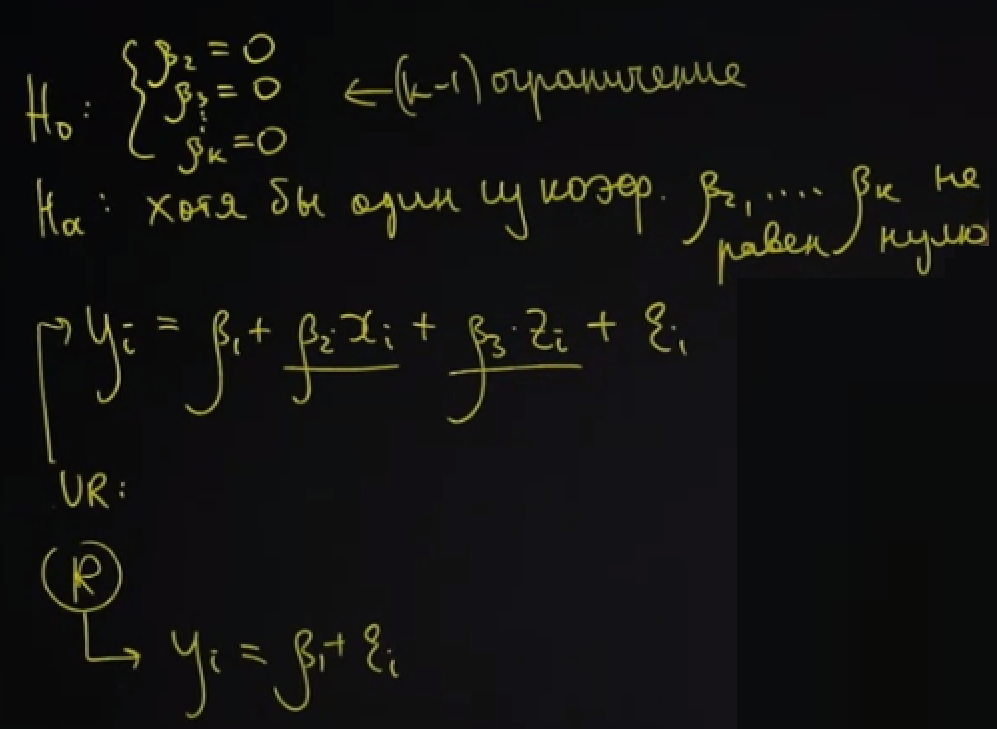 H₀: { β₂ = 0
β₃ = 0 ← (k-1) ограничение
⋮
βₖ = 0
Hₐ: хотя бы один из коэф. β₂, .... βₖ не
равен нулю
yᵢ = β₁ + β₂·xᵢ + β₃·zᵢ + εᵢ
UR:
R
yᵢ = β₁ + εᵢ